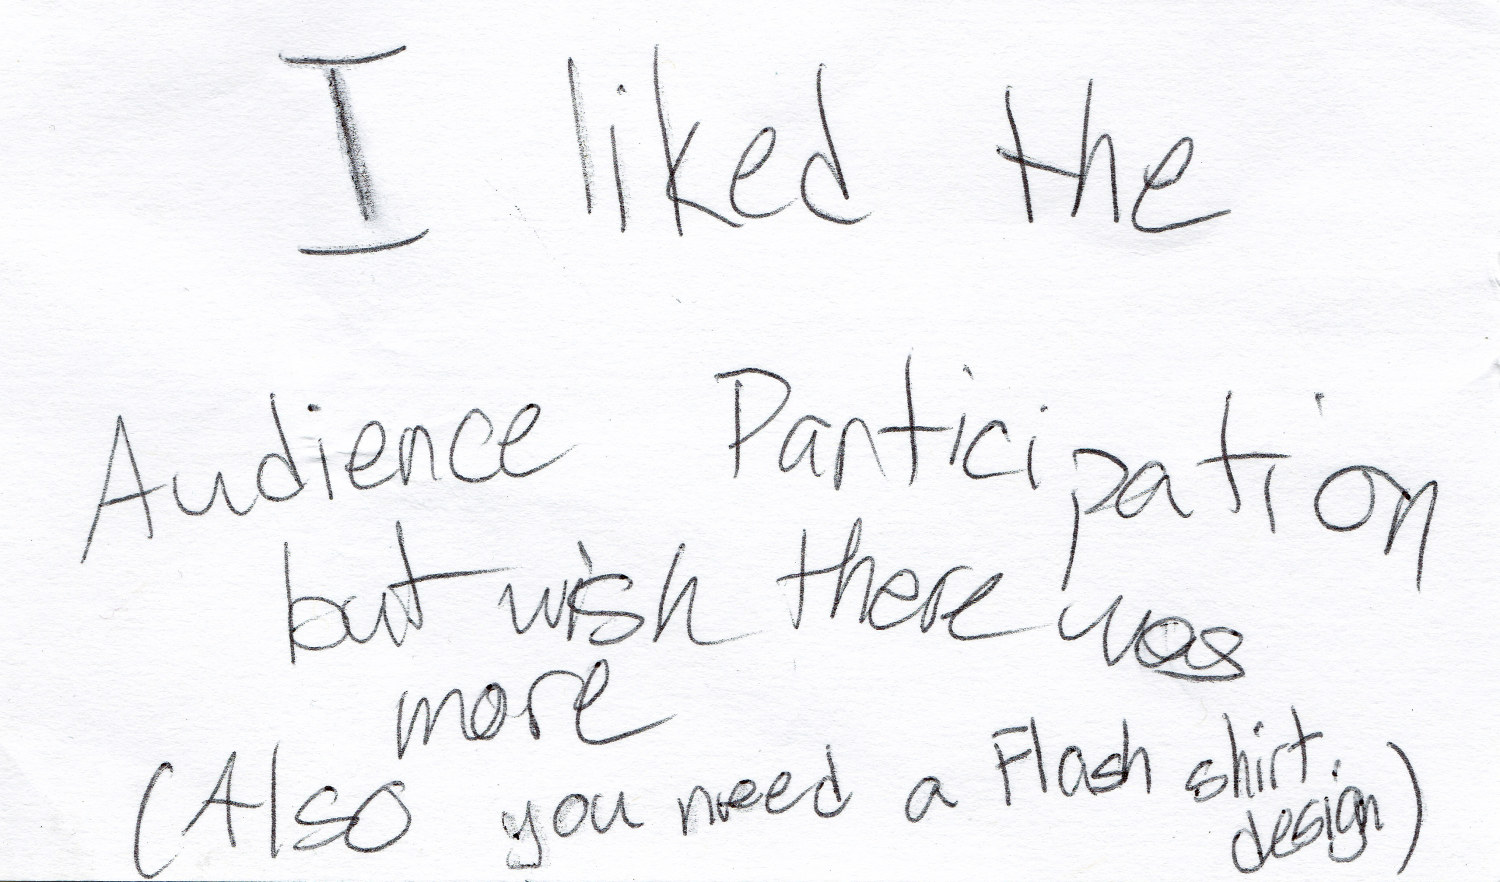 I liked the
Audience Participation
but wish there was
more
(Also you need a Flash shirt.
design)